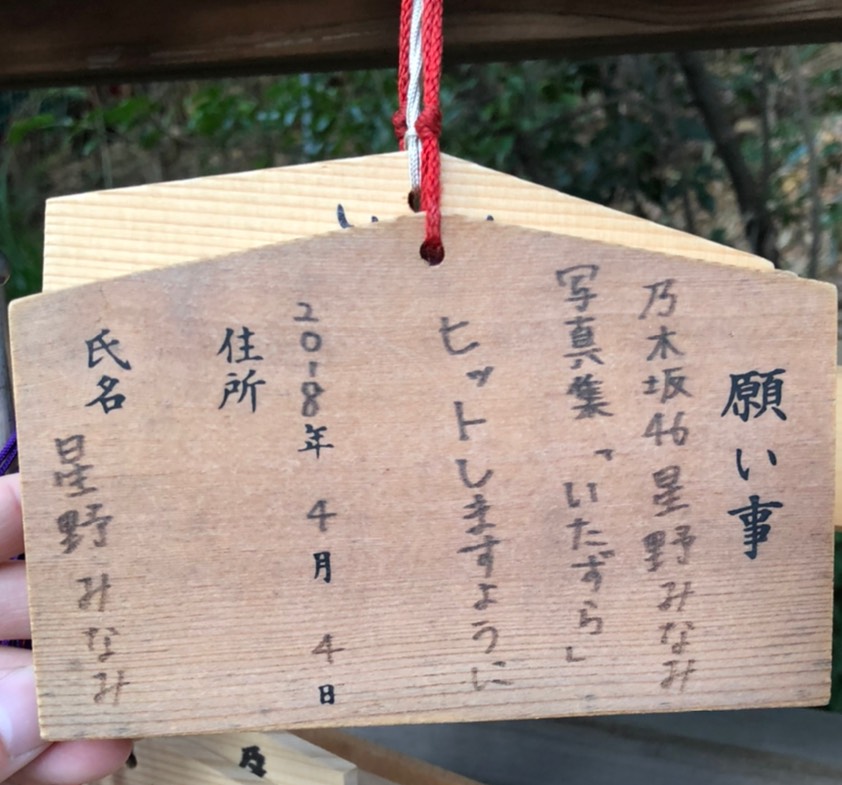 願い事
乃木坂46 星野みなみ
写真集「いたずら」
ヒットしますように
2018年 4月 4日
住所
氏名 星野 みなみ